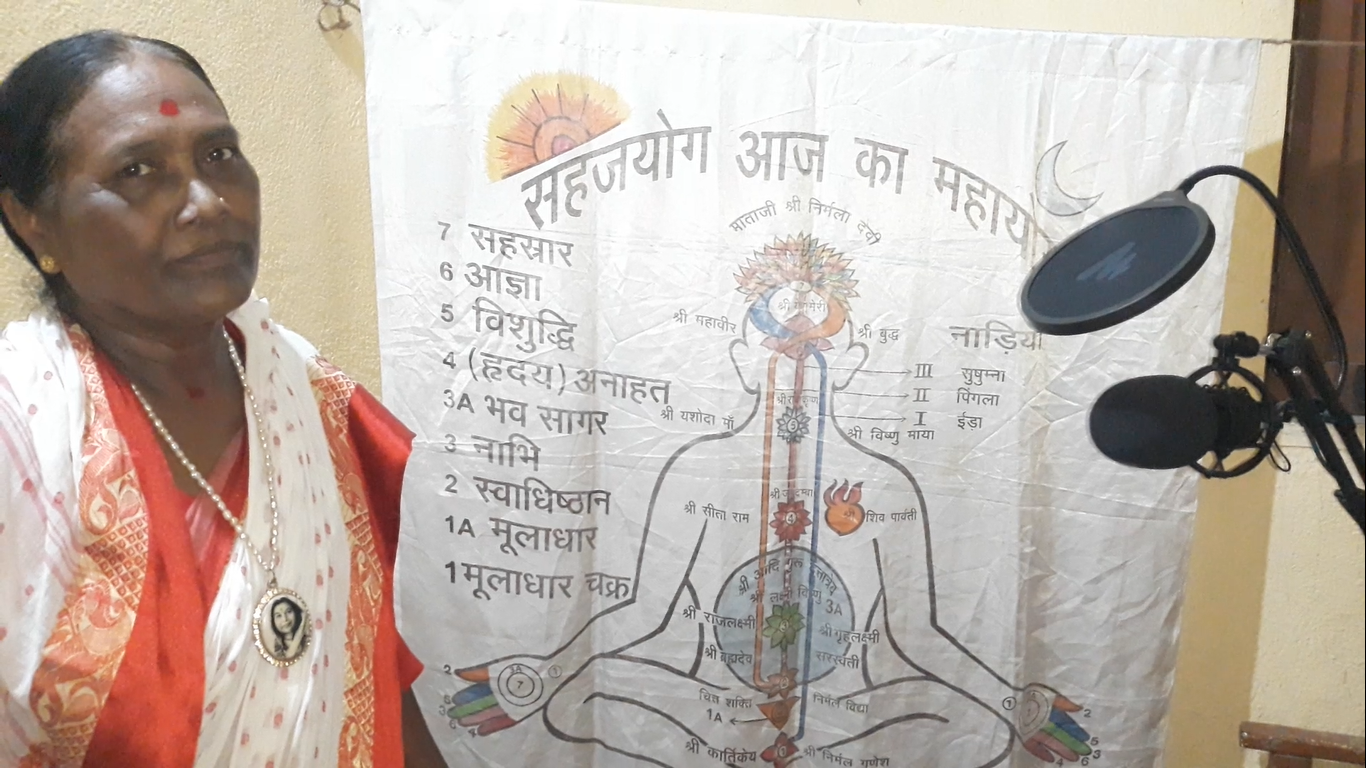 सहजयोग आज का महायो
माताजी श्री निर्मला देवी
7 सहस्रार
6 आज्ञा
5 विशुद्धि
4 (हृदय) अनाहत
3A भव सागर
3 नाभि
2 स्वाधिष्ठान
1A मूलाधार
1 मूलाधार चक्र
श्री महावीर
श्री बुद्ध
नाड़िया
III सुषुम्ना
II पिंगला
I ईड़ा
श्री यशोदा माँ
5
श्री विष्णु माया
श्री सीता राम
4
शिव पार्वती
श्री आदि गुरु
श्री लक्ष्मी विष्णु 3A
श्री राजलक्ष्मी
श्री गृहलक्ष्मी
श्री ब्रह्मदेव
सरस्वती
चित्त शक्ति
निर्मल विद्या
1A
श्री कार्तिकेय
श्री निर्मल गणेश
2
3A
1
7
1
2
5
3
6
4